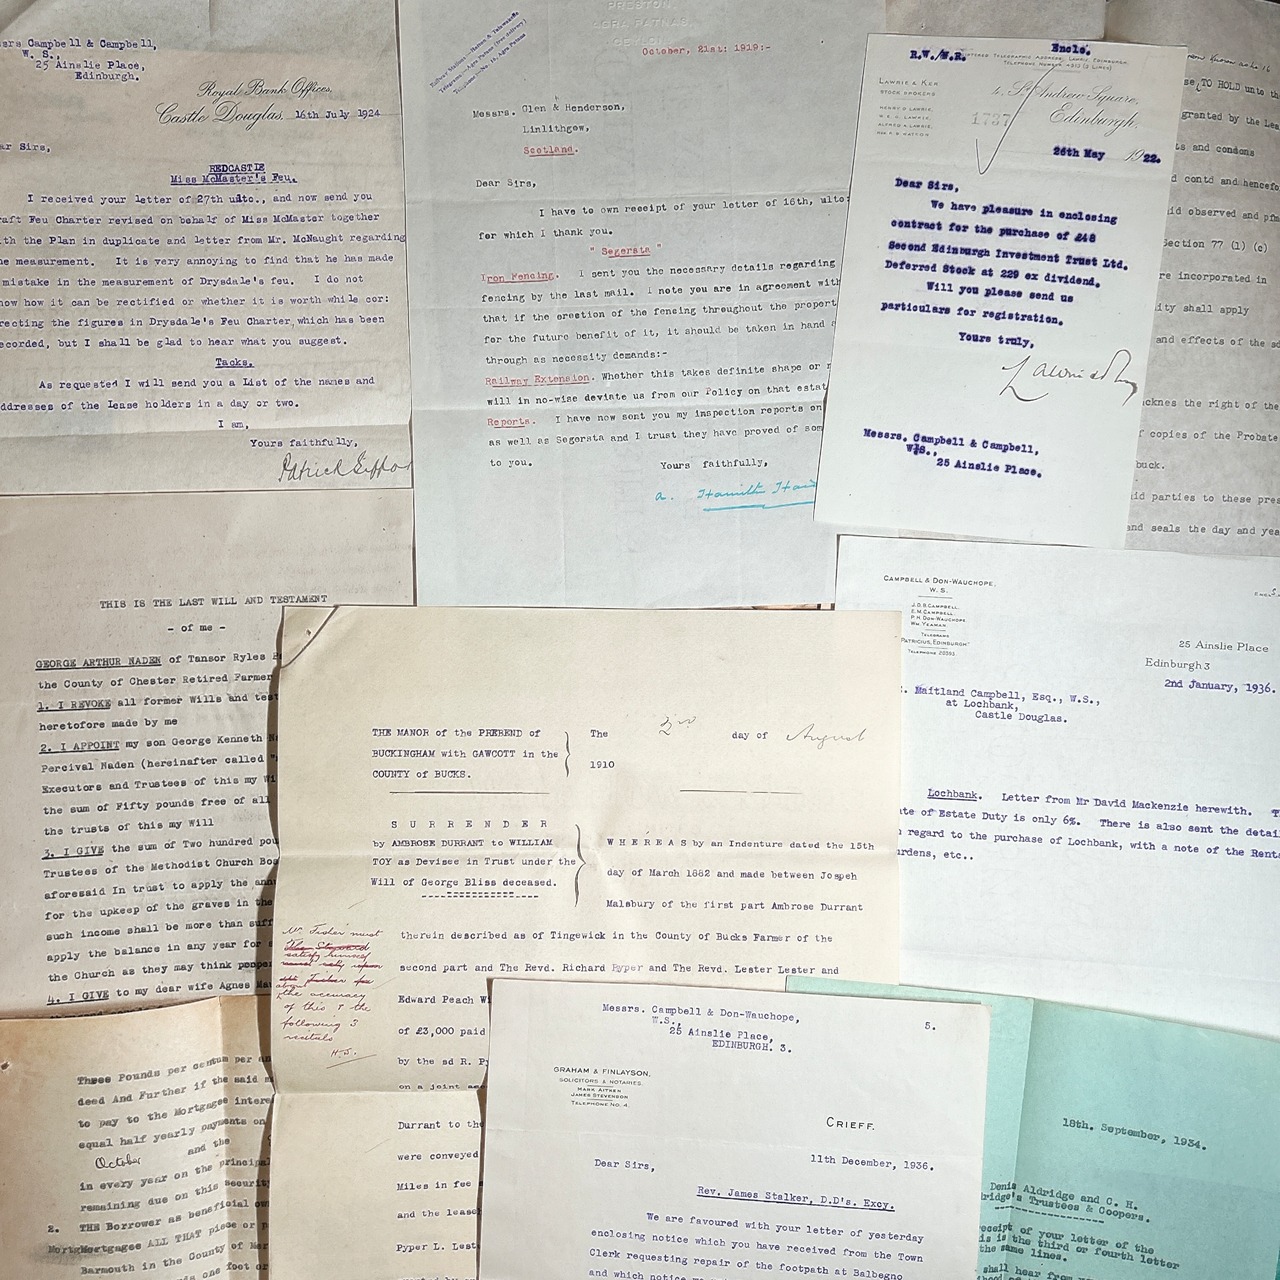 Campbell & Campbell,
W. S.,
25 Ainslie Place,
Edinburgh.
Royal Bank Offices,
Castle Douglas, 16th July 1924
Sirs,
REDCASTLE
Miss McMaster's Feu.
I received your letter of 27th ulto., and now send you
Feu Charter revised on behalf of Miss McMaster together
the Plan in duplicate and letter from Mr. McNaught regarding
measurement. It is very annoying to find that he has made
mistake in the measurement of Drysdale's feu. I do not
how it can be rectified or whether it is worth while cor:
recting the figures in Drysdale's Feu Charter, which has been
ecorded, but I shall be glad to hear what you suggest.
Tacks.
As requested I will send you a List of the names and
ddresses of the Lease holders in a day or two.
I am,
Yours faithfully,
Patrick Giffor
PRESTON,
AGRA PATNAS,
October, 21st: 1919:-
Messrs. Glen & Henderson,
Linlithgow,
Scotland.
Dear Sirs,
I have to own receipt of your letter of 16th, ulto:
for which I thank you.
" Segerata "
Iron Fencing. I sent you the necessary details regarding
fencing by the last mail. I note you are in agreement with
that if the erection of the fencing throughout the propert
for the future benefit of it, it should be taken in hand
through as necessity demands:-
Railway Extension. Whether this takes definite shape or
will in no-wise deviate us from our Policy on that estat
Reports. I have now sent you my inspection reports on
as well as Segerata and I trust they have proved of som
to you.
Yours faithfully,
a. Hamilton
Enclo.
R.W./W.R.
LAWRIE & KER
STOCK BROKERS
4, St Andrew Square,
Edinburgh,
1737
26th May 1922.
Dear Sirs,
We have pleasure in enclosing
contract for the purchase of £48
Second Edinburgh Investment Trust Ltd.
Deferred Stock at 229 ex dividend.
Will you please send us
particulars for registration.
Yours truly,
Messrs. Campbell & Campbell,
W.S.,
25 Ainslie Place.
TO HOLD unto the
granted by the Lea
ts and condons
contd and hencefo
id observed and pfm
Section 77 (1) (c)
re incorporated in
ity shall apply
and effects of the sd
cknes the right of the
copies of the Probate
buck.
id parties to these pres
and seals the day and yea
THIS IS THE LAST WILL AND TESTAMENT
- of me -
GEORGE ARTHUR NADEN of Tansor Ryles
the County of Chester Retired Farmer
1. I REVOKE all former Wills and tes
heretofore made by me
2. I APPOINT my son George Kenneth N
Percival Naden (hereinafter called
Executors and Trustees of this my Wi
the sum of Fifty pounds free of all
the trusts of this my Will
3. I GIVE the sum of Two hundred pou
Trustees of the Methodist Church Boa
aforesaid In trust to apply the ann
for the upkeep of the graves in the
such income shall be more than suff
apply the balance in any year for
the Church as they may think proper
4. I GIVE to my dear wife Agnes Ma
THE MANOR of the PREBEND of
BUCKINGHAM with GAWCOTT in the
COUNTY of BUCKS.
The day of August
1910
S U R R E N D E R
by AMBROSE DURRANT to WILLIAM
TOY as Devisee in Trust under the
Will of George Bliss deceased.
W H E R E A S by an Indenture dated the 15th
day of March 1882 and made between Jospeh
Malsbury of the first part Ambrose Durrant
therein described as of Tingewick in the County of Bucks Farmer of the
second part and The Revd. Richard Pyper and The Revd. Lester Lester and
Edward Peach Wi
of £3,000 paid
by the sd R. Py
on a joint acc
Durrant to the
were conveyed
Miles in fee
and the lease
Pyper L. Lest
Mr Fisher must
satisfy himself
the accuracy
of this & the
following 3
recitals
H.S.
CAMPBELL & DON-WAUCHOPE,
W. S.
J.D.B. CAMPBELL.
E.M. CAMPBELL.
P.H. DON-WAUCHOPE
WM. YEAMAN.
TELEGRAMS
"PATRICIUS, EDINBURGH"
TELEPHONE 20393.
25 Ainslie Place
Edinburgh 3
2nd January, 1936.
Maitland Campbell, Esq., W.S.,
at Lochbank,
Castle Douglas.
Lochbank. Letter from Mr David Mackenzie herewith. T
ate of Estate Duty is only 6%. There is also sent the detai
regard to the purchase of Lochbank, with a note of the Rent
rdens, etc..
Three Pounds per centum per an
deed And Further if the said m
to pay to the Mortgagee intere
equal half yearly payments on
October and the
in every year on the principal
remaining due on this securit
2. THE Borrower as beneficial ow
Mortgagee ALL THAT piece or p
Barmouth in the County of Mer
one foot or
Messrs. Campbell & Don-Wauchope,
W.S.,
25 Ainslie Place,
EDINBURGH. 3.
5.
GRAHAM & FINLAYSON,
SOLICITORS & NOTARIES.
MARK AITKEN
JAMES STEVENSON
TELEPHONE NO. 4.
CRIEFF.
11th December, 1936.
Dear Sirs,
Rev. James Stalker, D.D's. Excy.
We are favoured with your letter of yesterday
enclosing notice which you have received from the Town
Clerk requesting repair of the footpath at Balbegno
and which notice
18th. September, 1934.
Denis Aldridge and C. H.
ridge's Trustees & Coopers.
receipt of your letter of the
is is the third or fourth letter
the same lines.
shall hear from